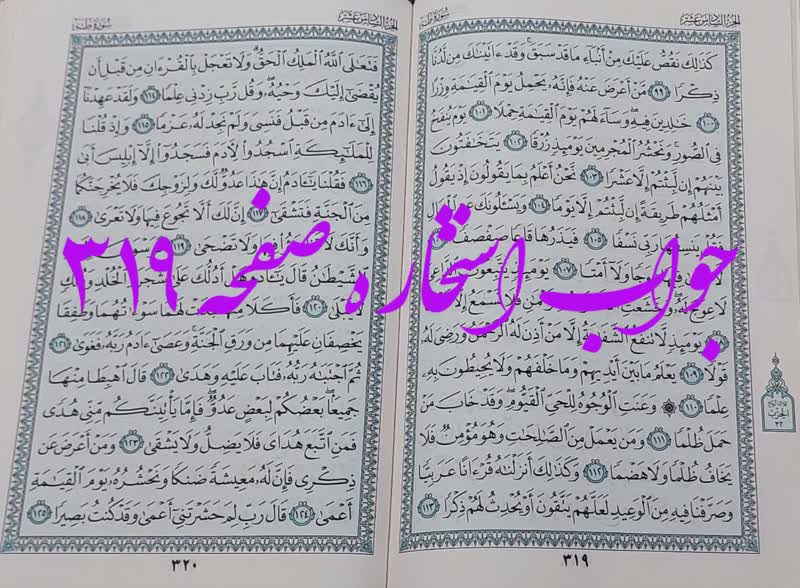 جواب استخاره صفحه ۳۱۹
الجزء السادس عشر
سورة طه
كَذَٰلِكَ نَقُصُّ عَلَيْكَ مِنْ أَنۢبَآءِ مَا قَدْ سَبَقَ وَقَدْ ءَاتَيْنَٰكَ مِن لَّدُنَّا
ذِكْرًا ٩٩ مَّنْ أَعْرَضَ عَنْهُ فَإِنَّهُۥ يَحْمِلُ يَوْمَ ٱلْقِيَٰمَةِ وِزْرًا
١٠٠ خَٰلِدِينَ فِيهِ وَسَآءَ لَهُمْ يَوْمَ ٱلْقِيَٰمَةِ حِمْلًا ١٠١ يَوْمَ يُنفَخُ
فِى ٱلصُّورِ وَنَحْشُرُ ٱلْمُجْرِمِينَ يَوْمَئِذٍ زُرْقًا ١٠٢ يَتَخَٰفَتُونَ
بَيْنَهُمْ إِن لَّبِثْتُمْ إِلَّا عَشْرًا ١٠٣ نَّحْنُ أَعْلَمُ بِمَا يَقُولُونَ إِذْ يَقُولُ
أَمْثَلُهُمْ طَرِيقَةً إِن لَّبِثْتُمْ إِلَّا يَوْمًا ١٠٤ وَيَسْـَٔلُونَكَ عَنِ ٱلْجِبَالِ
فَقُلْ يَنسِفُهَا رَبِّى نَسْفًا ١٠٥ فَيَذَرُهَا قَاعًا صَفْصَفًا
لَّا تَرَىٰ فِيهَا عِوَجًا وَلَآ أَمْتًا ١٠٧ يَوْمَئِذٍ يَتَّبِعُونَ ٱلدَّاعِىَ
لَا عِوَجَ لَهُۥ وَخَشَعَتِ فَلَا تَسْمَعُ إِلَّا
يَوْمَئِذٍ لَّا تَنفَعُ ٱلشَّفَٰعَةُ إِلَّا مَنْ أَذِنَ لَهُ ٱلرَّحْمَٰنُ وَرَضِىَ لَهُۥ
قَوْلًا ١٠٩ يَعْلَمُ مَا بَيْنَ أَيْدِيهِمْ وَمَا خَلْفَهُمْ وَلَا يُحِيطُونَ بِهِۦ
عِلْمًا ١١٠ ۞ وَعَنَتِ ٱلْوُجُوهُ لِلْحَىِّ ٱلْقَيُّومِ وَقَدْ خَابَ مَنْ
حَمَلَ ظُلْمًا ١١١ وَمَن يَعْمَلْ مِنَ ٱلصَّٰلِحَٰتِ وَهُوَ مُؤْمِنٌ فَلَا
يَخَافُ ظُلْمًا وَلَا هَضْمًا ١١٢ وَكَذَٰلِكَ أَنزَلْنَٰهُ قُرْءَانًا عَرَبِيًّا
وَصَرَّفْنَا فِيهِ مِنَ ٱلْوَعِيدِ لَعَلَّهُمْ يَتَّقُونَ أَوْ يُحْدِثُ لَهُمْ ذِكْرًا ١١٣
٣١٩
الجزء السادس عشر
سورة طه
فَتَعَٰلَى ٱللَّهُ ٱلْمَلِكُ ٱلْحَقُّ وَلَا تَعْجَلْ بِٱلْقُرْءَانِ مِن قَبْلِ أَن
يُقْضَىٰٓ إِلَيْكَ وَحْيُهُۥ وَقُل رَّبِّ زِدْنِى عِلْمًا ١١٤ وَلَقَدْ عَهِدْنَآ
إِلَىٰٓ ءَادَمَ مِن قَبْلُ فَنَسِىَ وَلَمْ نَجِدْ لَهُۥ عَزْمًا ١١٥ وَإِذْ قُلْنَا
لِلْمَلَٰٓئِكَةِ ٱسْجُدُوا۟ لِءَادَمَ فَسَجَدُوٓا۟ إِلَّآ إِبْلِيسَ أَبَىٰ
١١٦ فَقُلْنَا يَٰٓـَٔادَمُ إِنَّ هَٰذَا عَدُوٌّ لَّكَ وَلِزَوْجِكَ فَلَا يُخْرِجَنَّكُمَا
مِنَ ٱلْجَنَّةِ فَتَشْقَىٰٓ ١١٧ إِنَّ لَكَ أَلَّا تَجُوعَ فِيهَا وَلَا تَعْرَىٰ ١١٨
وَأَنَّكَ لَا تَظْمَؤُا۟ فِيهَا وَلَا تَضْحَىٰ ١١٩ فَوَسْوَسَ
ٱلشَّيْطَٰنُ قَالَ يَٰٓـَٔادَمُ هَلْ أَدُلُّكَ عَلَىٰ شَجَرَةِ ٱلْخُلْدِ وَمُلْكٍ
لَّا يَبْلَىٰ ١٢٠ فَأَكَلَا مِنْهَا فَبَدَتْ لَهُمَا سَوْءَٰتُهُمَا وَطَفِقَا
يَخْصِفَانِ عَلَيْهِمَا مِن وَرَقِ ٱلْجَنَّةِ وَعَصَىٰٓ ءَادَمُ رَبَّهُۥ فَغَوَىٰ ١٢١
ثُمَّ ٱجْتَبَٰهُ رَبُّهُۥ فَتَابَ عَلَيْهِ وَهَدَىٰ ١٢٢ قَالَ ٱهْبِطَا مِنْهَا
جَمِيعًۢا بَعْضُكُمْ لِبَعْضٍ عَدُوٌّ فَإِمَّا يَأْتِيَنَّكُم مِّنِّى هُدًى
فَمَنِ ٱتَّبَعَ هُدَاىَ فَلَا يَضِلُّ وَلَا يَشْقَىٰ ١٢٣ وَمَنْ أَعْرَضَ عَن
ذِكْرِى فَإِنَّ لَهُۥ مَعِيشَةً ضَنكًا وَنَحْشُرُهُۥ يَوْمَ ٱلْقِيَٰمَةِ
أَعْمَىٰ ١٢٤ قَالَ رَبِّ لِمَ حَشَرْتَنِىٓ أَعْمَىٰ وَقَدْ كُنتُ بَصِيرًا ١٢٥
٣٢٠